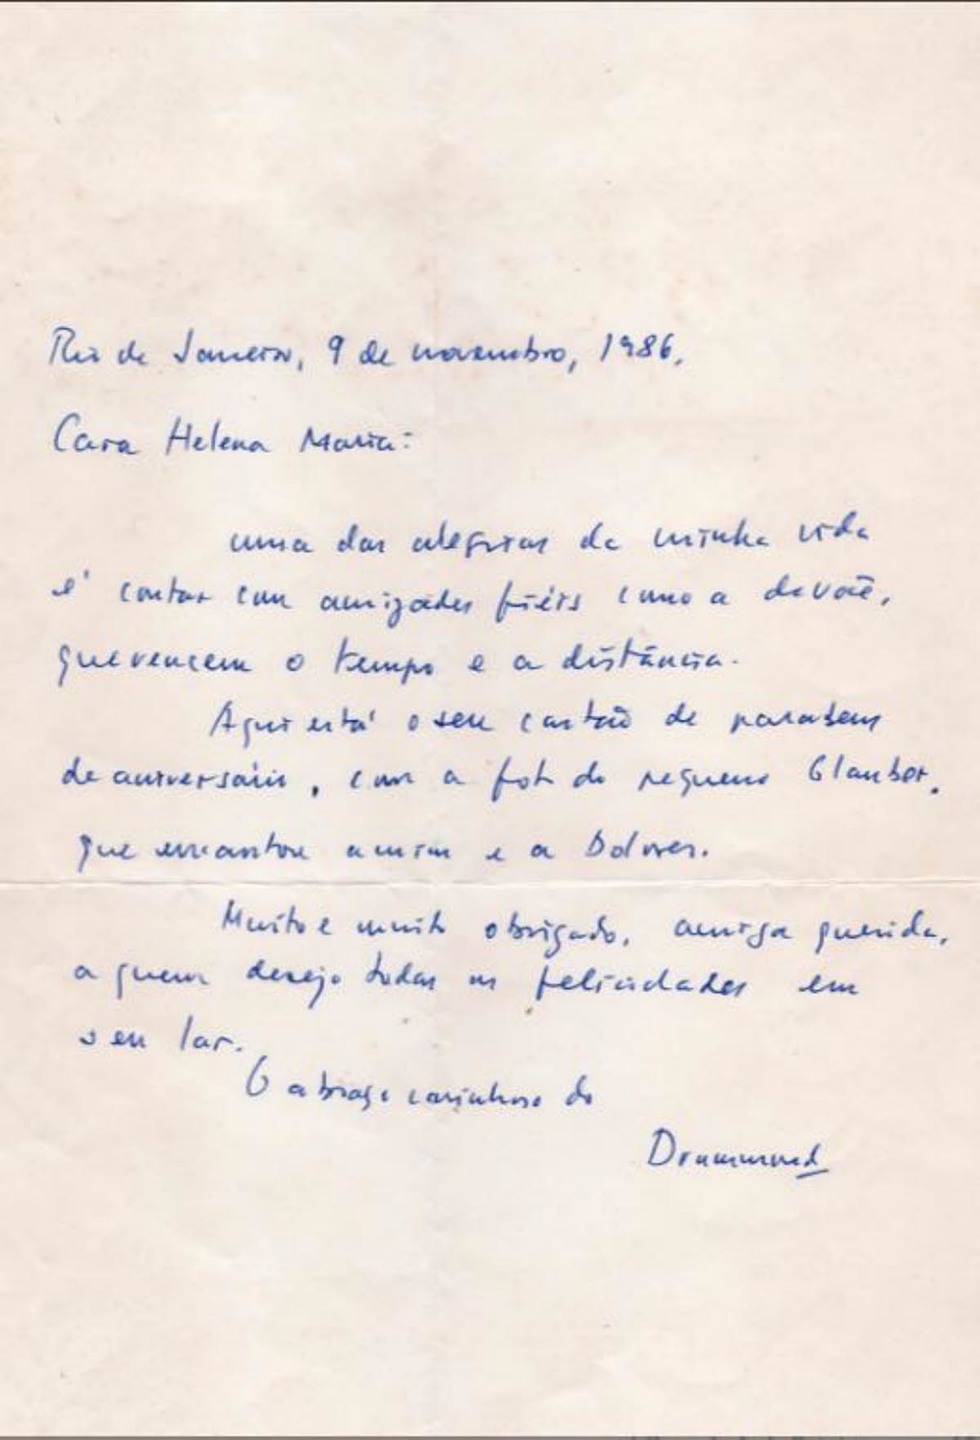 Rio de Janeiro, 9 de novembro, 1986.
Cara Helena Maria:
uma das alegrias da minha vida
é contar com amizades fiéis como a de você,
que vencem o tempo e a distância.
Aqui está o seu cartão de parabens
de aniversário, com a foto do pequeno Glauber,
que encantou a mim e a Dolores.
Muito e muito obrigado, amiga querida,
a quem desejo todas as felicidades em
seu lar.
O abraço carinhoso do
Drummond